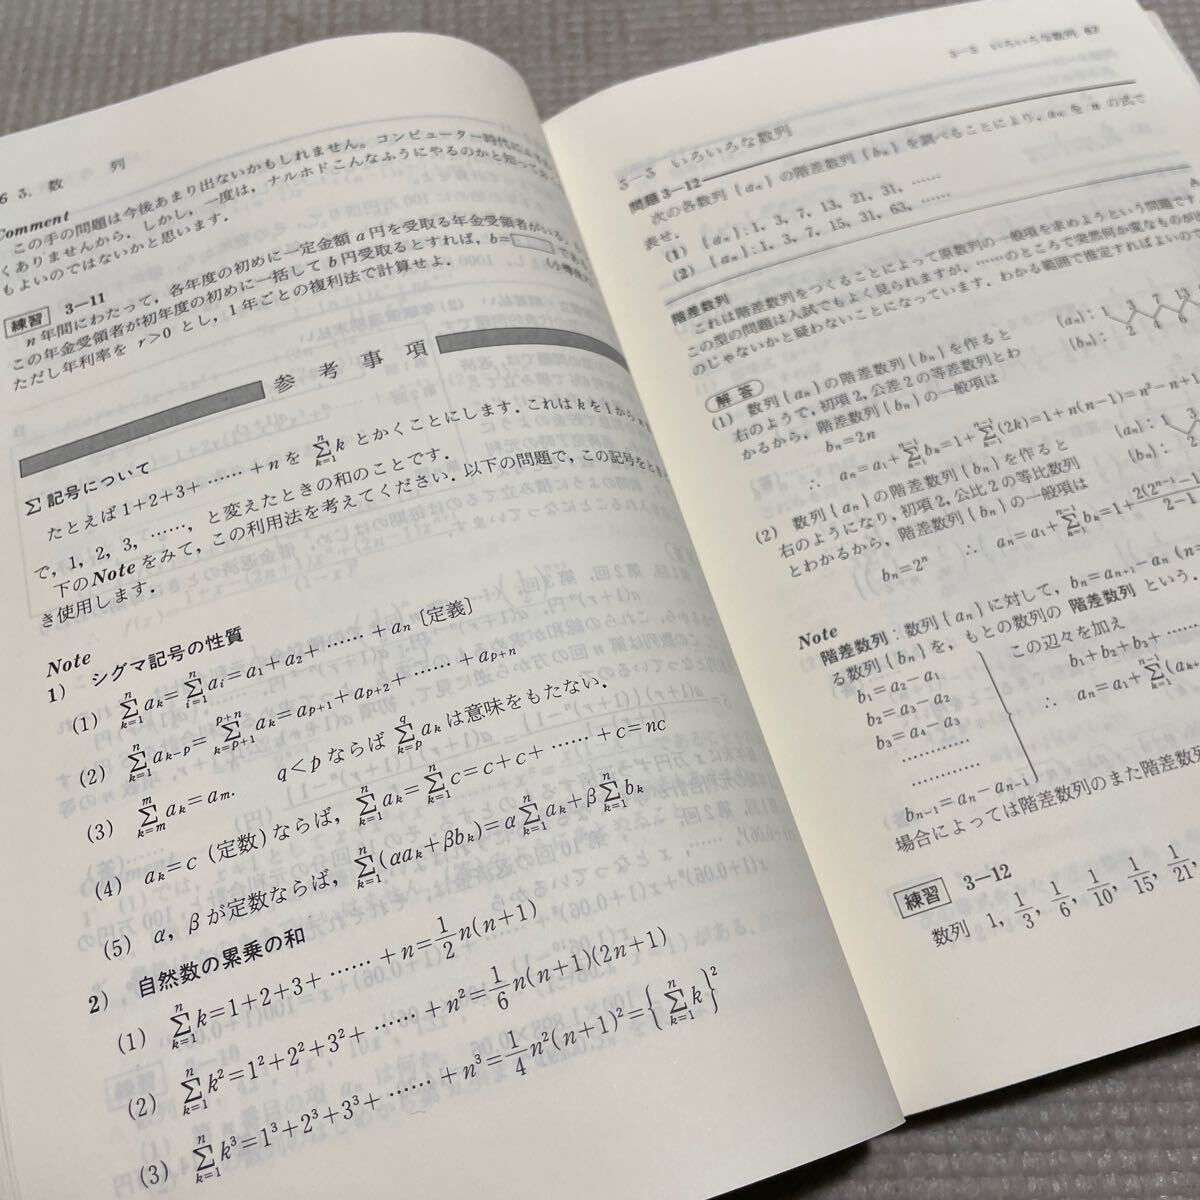 6 3. 数 列
Comment
この手の問題は今後あまり出ないかもしれません。コンピューター時代に
くありませんから．しかし，一度は，ナルホドこんなふうにやるのかと知って
もよいのではないかと思います．
練習 3—11
n年間にわたって，各年度の初めに一定金額a円を受取る年金受領者がいる．
この年金受領者が初年度の初めに一括してb円受取るとすれば，b=
ただし年利率を r>0 とし，1年ごとの複利法で計算せよ．
参考事項
Σ記号について
たとえば1+2+3+……+nを Σ_{k=1}^{n} k とかくことにします．これはkを1から
で，1, 2, 3, ……，と変えたときの和のことです．
下のNoteをみて，この利用法を考えてください．以下の問題で，この記号をとき
き使用します．
Note
1) シグマ記号の性質
(1) Σ_{k=1}^{n} a_k=Σ_{i=1}^{n} a_i=a_1+a_2+……+a_n [定義]
(2) Σ_{k=1}^{n} a_{k-p}=Σ_{k=p+1}^{p+n} a_k=a_{p+1}+a_{p+2}+……+a_{p+n}
(3) Σ_{k=m}^{m} a_k=a_m. q<pならば Σ_{k=p}^{q} a_k は意味をもたない．
(4) a_k=c (定数) ならば，Σ_{k=1}^{n} a_k=Σ_{k=1}^{n} c=c+c+……+c=nc
(5) α, βが定数ならば，Σ_{k=1}^{n}(αa_k+βb_k)=αΣ_{k=1}^{n} a_k+βΣ_{k=1}^{n} b_k
2) 自然数の累乗の和
(1) Σ_{k=1}^{n} k=1+2+3+……+n=1/2 n(n+1)
(2) Σ_{k=1}^{n} k²=1²+2²+3²+……+n²=1/6 n(n+1)(2n+1)
(3) Σ_{k=1}^{n} k³=1³+2³+3³+……+n³=1/4 n²(n+1)²={Σ_{k=1}^{n} k}²
3—3 いろいろな数列 67
3—3 いろいろな数列
問題3—12
次の各数列{a_n}の階差数列{b_n}を調べることにより，a_nをnの式で
表せ．
(1) {a_n}：1, 3, 7, 13, 21, 31, ……
(2) {a_n}：1, 3, 7, 15, 31, 63, ……
階差数列
これは階差数列をつくることによって原数列の一般項を求めようという問題です
この型の問題は入試でもよく見られますが，……のところで突然何か変なものが
のじゃないかと疑わないことになっています．わかる範囲で推定すればよいので
解答
(1) 数列{a_n}の階差数列{b_n}を作ると
右のようで，初項2, 公差2の等差数列とわ
かるから，階差数列{b_n}の一般項は
b_n=2n
∴ a_n=a_1+Σ_{k=1}^{n-1} b_k=1+Σ_{k=1}^{n-1}(2k)=1+n(n−1)=n²−n+1
{a_n}：1 3 7 13
{b_n}： 2 4 6
(2) 数列{a_n}の階差数列{b_n}を作ると
右のようになり，初項2, 公比2の等比数列
とわかるから，階差数列{b_n}の一般項は
b_n=2^n ∴ a_n=a_1+Σ_{k=1}^{n-1} b_k=1+2(2^{n-1}−1)/2−1
{a_n}：1
{b_n}：
Note
階差数列：数列{a_n}に対して，b_n=a_{n+1}−a_n (n=
る数列{b_n}を，もとの数列の 階差数列 という．
b_1=a_2−a_1
b_2=a_3−a_2
b_3=a_4−a_3
…………
…………
b_{n-1}=a_n−a_{n-1}
この辺々を加え
b_1+b_2+b_3+……
∴ a_n=a_1+Σ_{k=1}^{n-1}(a_{k+
場合によっては階差数列のまた階差数列
練習 3—12
数列 1, 1/3, 1/6, 1/10, 1/15, 1/21,